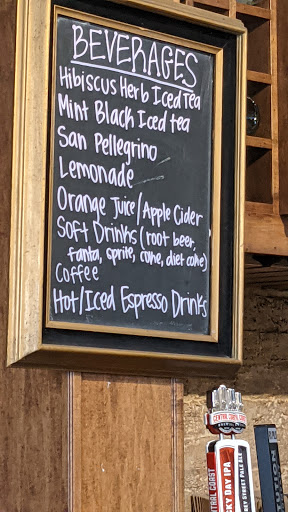 BEVERAGES
Hibiscus Herb Iced Tea
Mint Black Iced tea
San Pellegrino
Lemonade
Orange Juice/Apple Cider
Soft Drinks (root beer,
fanta, sprite, coke, diet coke)
Coffee
Hot/Iced Espresso Drinks
CENTRAL COAST
CENTRAL COAST
KY DAY IPA
STREET PALE ALE